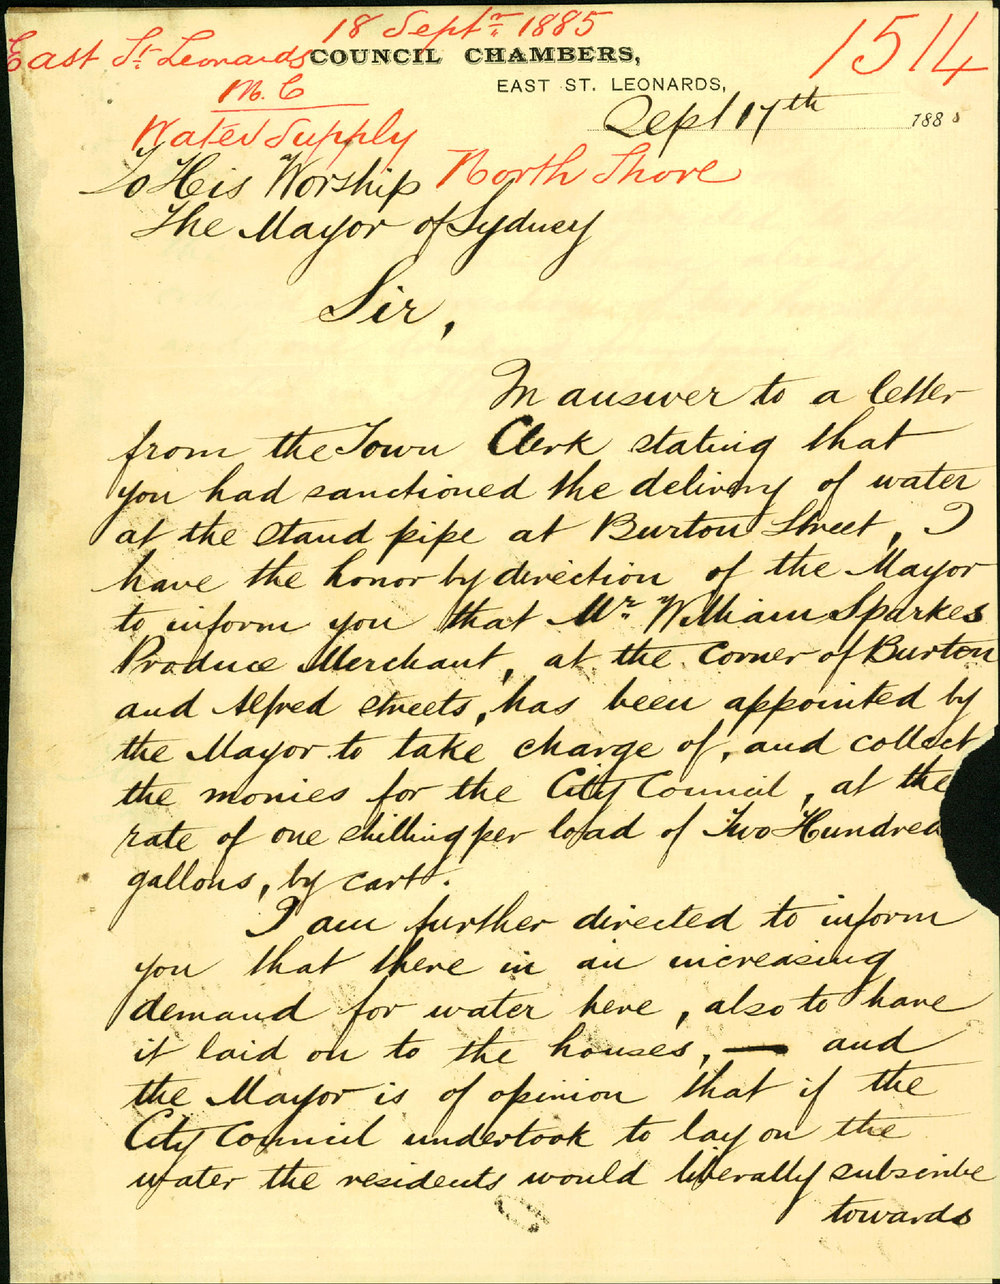 18 Septr 1885
1514
East St Leonards
COUNCIL CHAMBERS,
M.C
EAST ST. LEONARDS,
Sept 17th 1885
Water Supply
North Shore
To His Worship
The Mayor of Sydney
Sir,
In answer to a letter
from the Town Clerk stating that
you had sanctioned the delivery of water
at the stand pipe at Burton Street, I
have the honor by direction of the Mayor
to inform you that Mr William Sparkes
Produce Merchant, at the corner of Burton
and Alfred streets, has been appointed by
the Mayor to take charge of, and collect
the monies for the City Council, at the
rate of one shilling per load of Two Hundred
gallons, by cart.
I am further directed to inform
you that there in an increasing
demand for water here, also to have
it laid on to the houses, — and
the Mayor is of opinion that if the
City Council undertook to lay on the
water the residents would liberally subscribe
towards